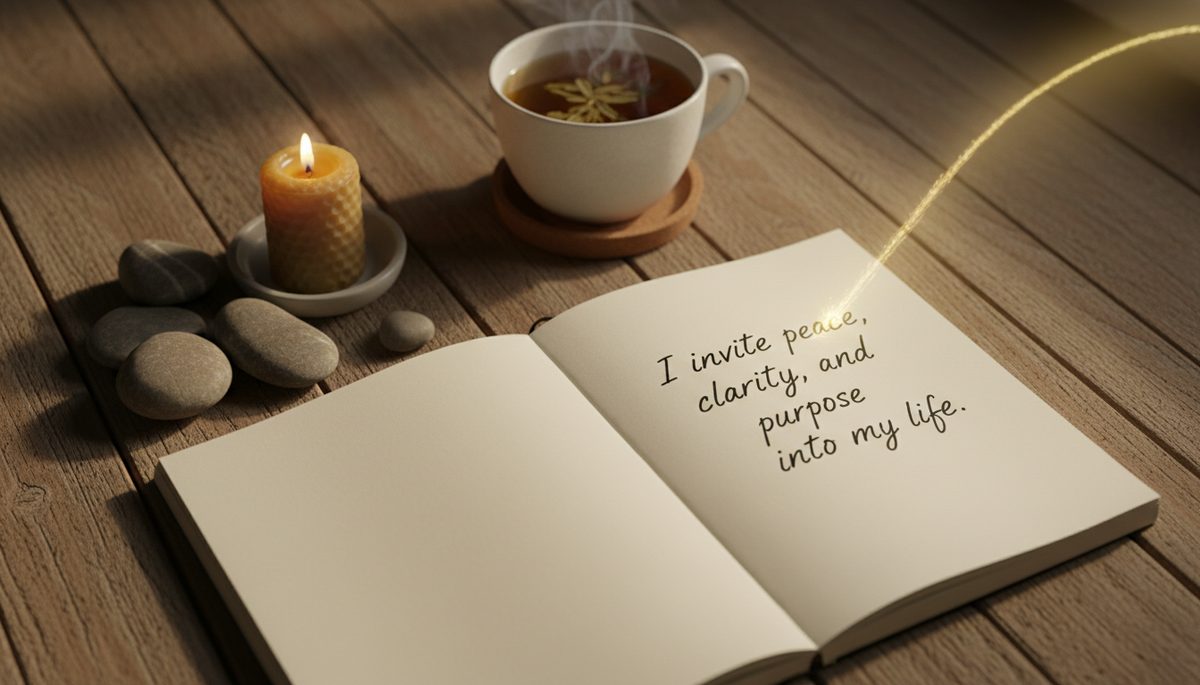 I invite peace,
clarity, and
purpose
into my life.